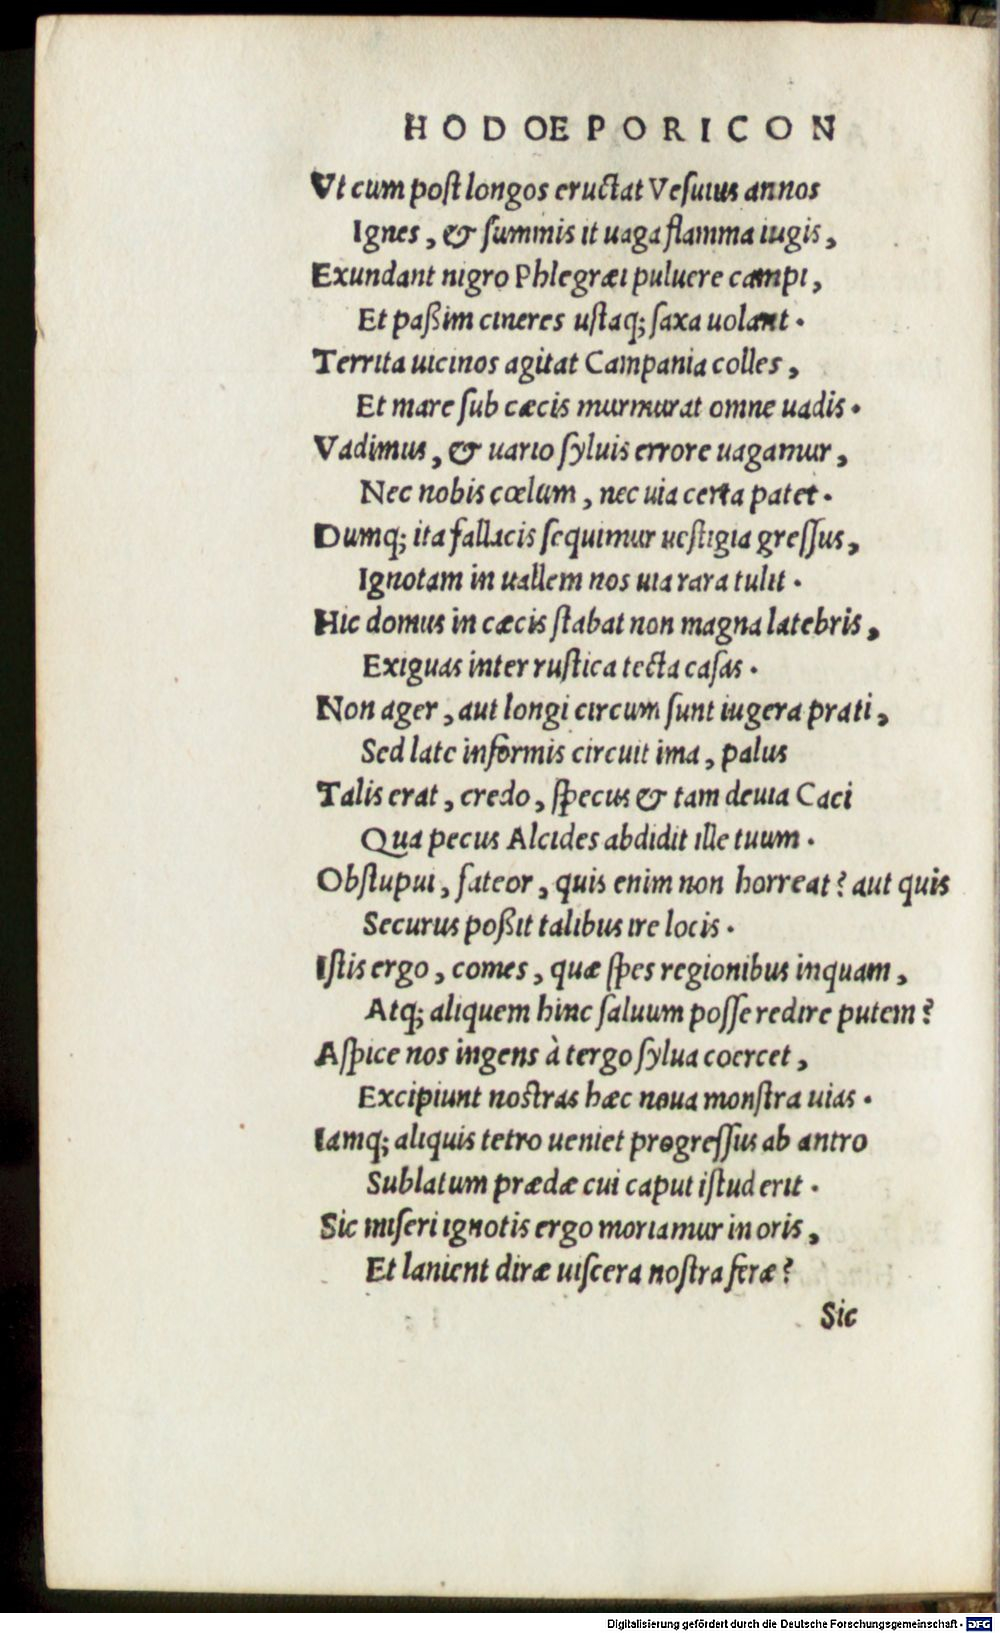 HODOEPORICON
Vt cum poſt longos eructat Veſuius annos
Ignes, & ſummis it uaga flamma iugis,
Exundant nigro Phlegræi puluere campi,
Et paßim cineres uſtaq; ſaxa uolant.
Territa uicinos agitat Campania colles,
Et mare ſub cæcis murmurat omne uadis.
Vadimus, & uario ſyluis errore uagamur,
Nec nobis cœlum, nec uia certa patet.
Dumq; ita fallacis ſequimur ueſtigia greſſus,
Ignotam in uallem nos uia rara tulit.
Hic domus in cæcis ſtabat non magna latebris,
Exiguas inter ruſtica tecta caſas.
Non ager, aut longi circum ſunt iugera prati,
Sed late informis circuit ima, palus
Talis erat, credo, ſpecus & tam deuia Caci
Qua pecus Alcides abdidit ille tuum.
Obſtupui, fateor, quis enim non horreat? aut quis
Securus poßit talibus ire locis.
Iſtis ergo, comes, quæ ſpes regionibus inquam,
Atq; aliquem hinc ſaluum poſſe redire putem?
Aſpice nos ingens à tergo ſylua coercet,
Excipiunt nostras hæc noua monſtra uias.
Iamq; aliquis tetro ueniet progreſſus ab antro
Sublatum prædæ cui caput iſtud erit.
Sic miſeri ignotis ergo moriamur in oris,
Et lanient diræ uiſcera noſtra feræ?
Sic
Digitalisierung gefördert durch die Deutsche Forschungsgemeinschaft - DFG